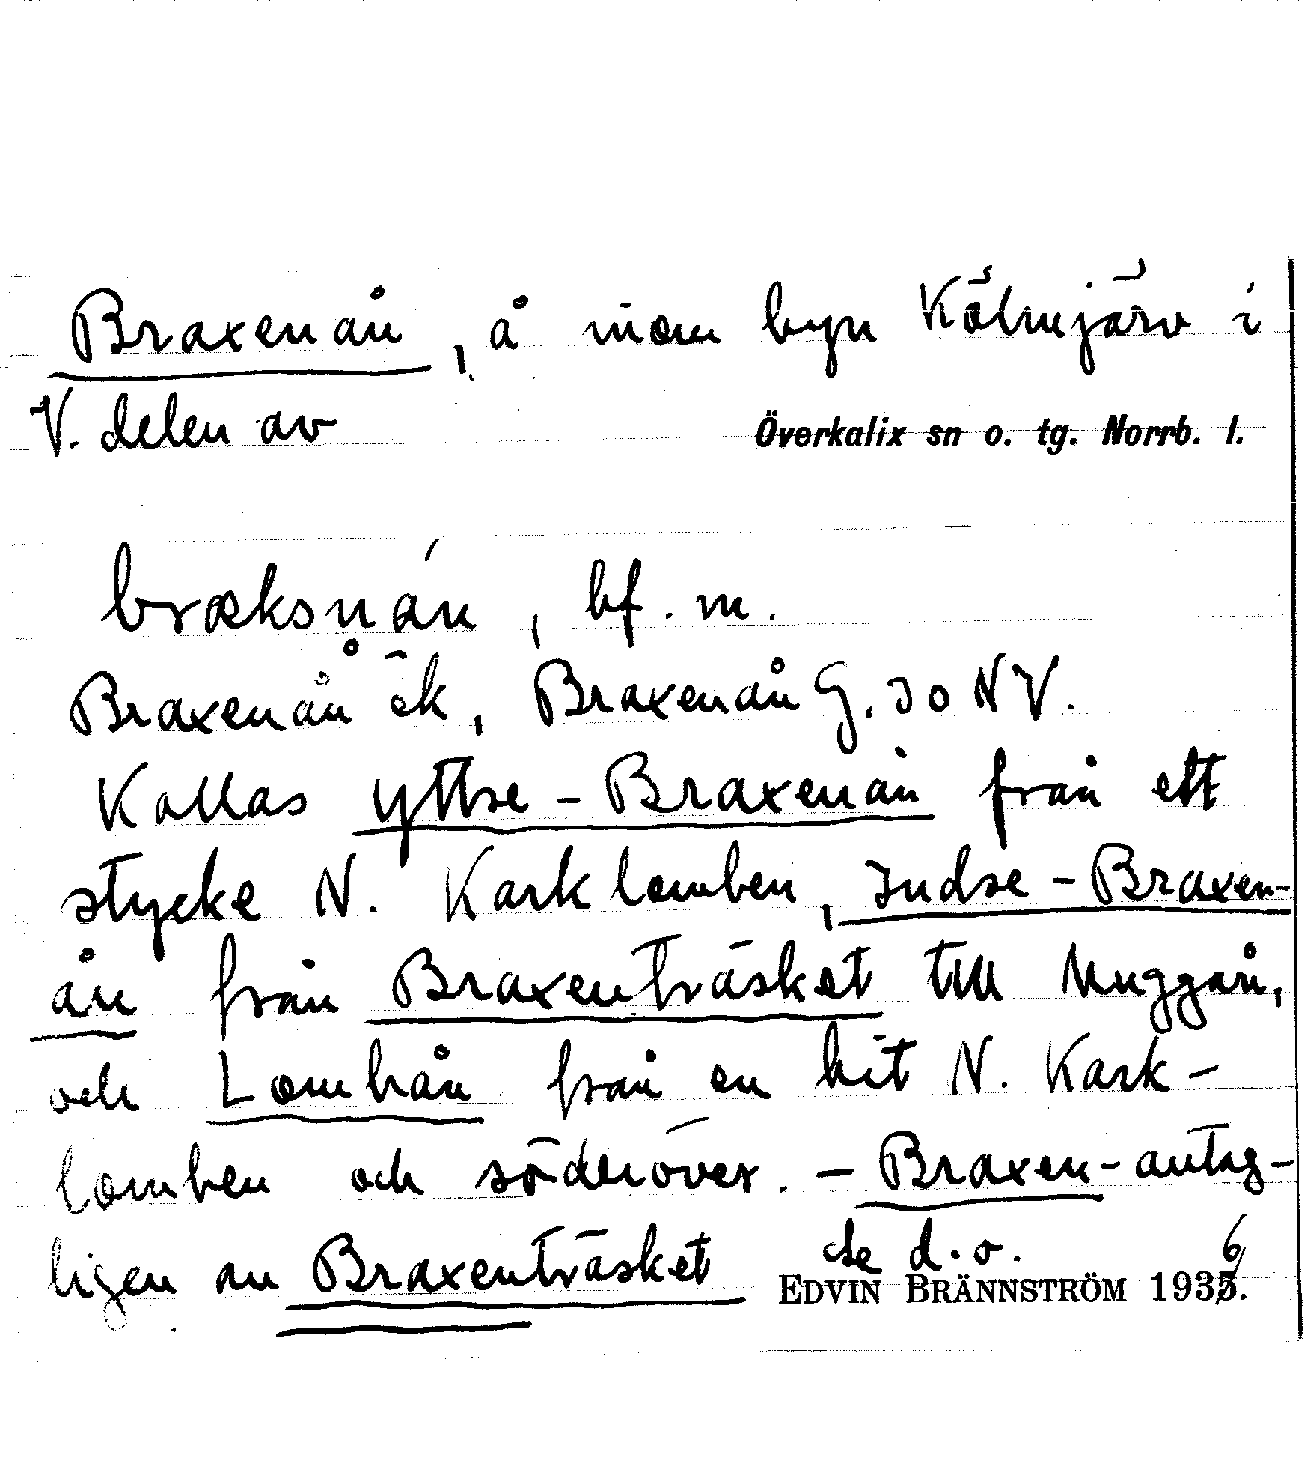 Braxenån, å inom byn Kölmjärv i
V. delen av Överkalix sn o. tg. Norrb. l.
bræksnán, bf. m.
Braxenån ek, Braxenån G. 30 NV.
Kallas yttre-Braxenån från ett
stycke N. Karklomben, Indse-Braxen-
ån från Braxenträsket till Muggån,
och Lombån från en bit N. Kark-
lomben och söderöver. – Braxen- antag-
ligen av Braxenträsket se d.o.
EDVIN BRÄNNSTRÖM 1936.